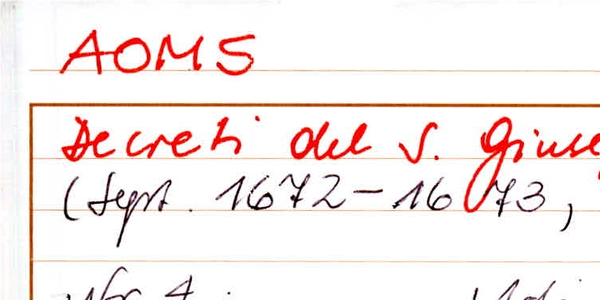 AOMS
Decreti del S. Giuse
(Sept. 1672-1673,
Nr. 1: